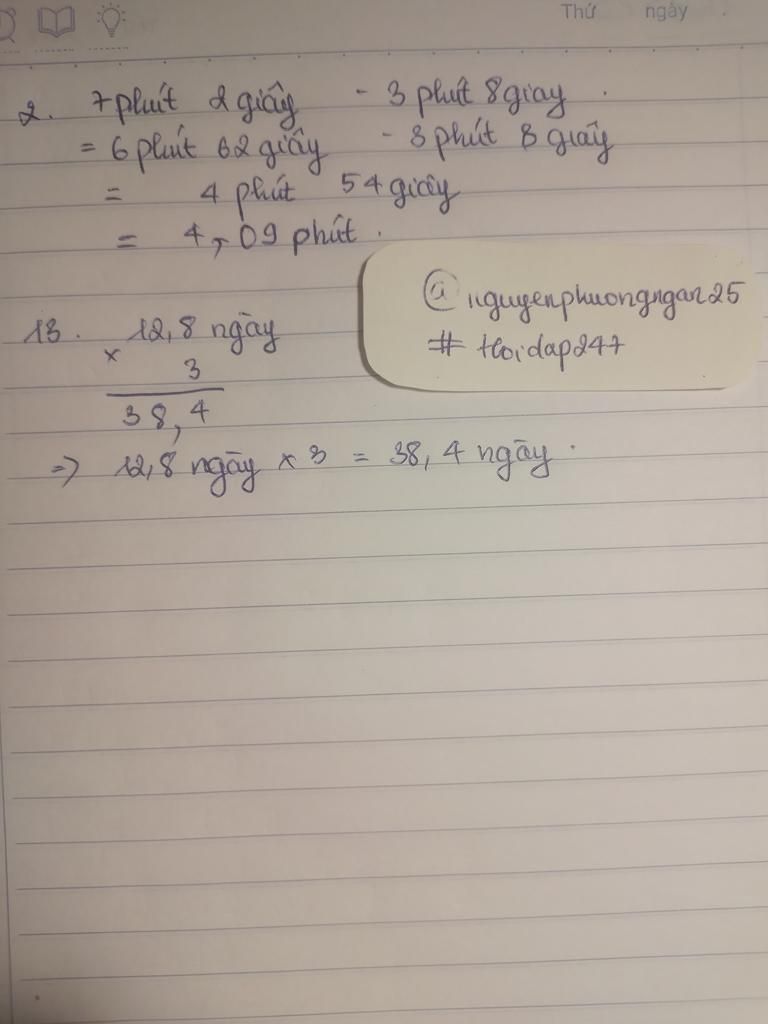 Thứ ngày
2. 7 phút 2 giây - 3 phút 8 giay.
= 6 phút 62 giây - 3 phút 8 giây
= 4 phút 54 giây
= 4,09 phút.
@nguyenphuongngan25
# Hoidap247
13. 12,8 ngày
× 3
38,4
=> 12,8 ngày × 3 = 38,4 ngày.